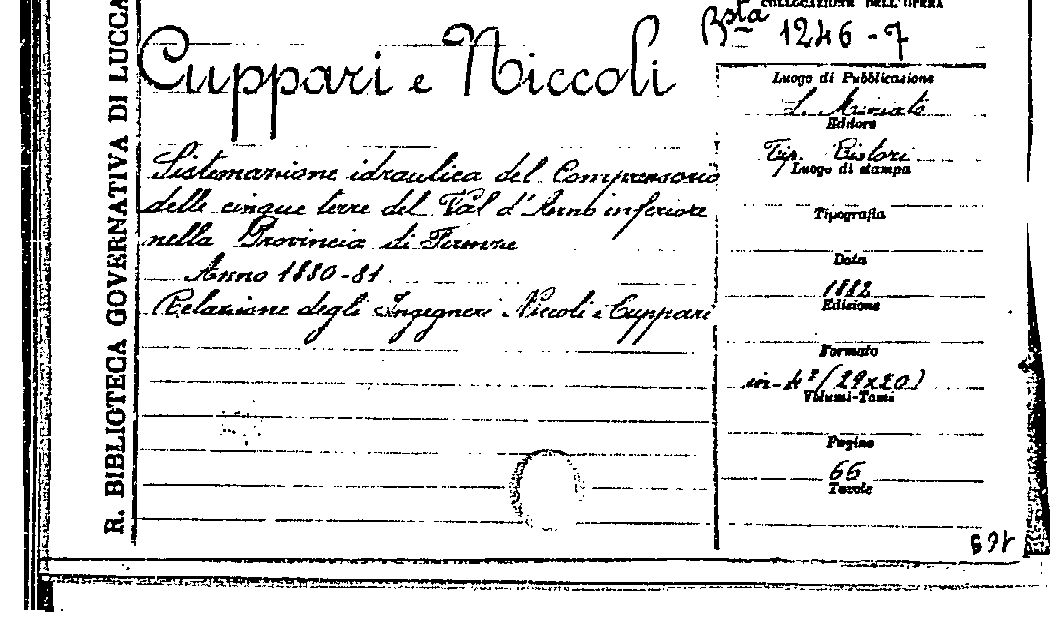 COLLOCAZIONE DELL'OPERA
Bsta 1246-7
R. BIBLIOTECA GOVERNATIVA DI LUCCA
Cuppari e Niccoli
Sistemazione idraulica del Comprensorio
delle cinque terre del Val d'Arno inferiore
nella Provincia di Firenze
Anno 1880-81
Relazione degli Ingegneri Niccoli e Cuppari
Luogo di Pubblicazione
S. Miniato
Editore
Tip. Ristori
Luogo di stampa
Tipografia
Data
1882
Edizione
Formato
in-4º (29x20)
Volumi-Tomi
Pagine
66
Tavole